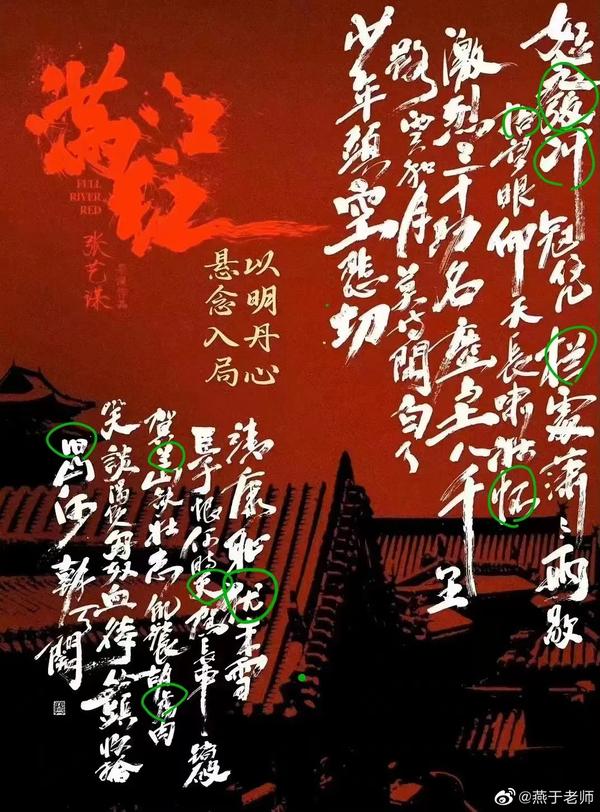 满江红
FULL
RIVER
RED
张艺谋
以明丹心
悬念入局
怒發冲冠凭栏處潇々雨歇
抬望眼仰天長啸壮怀
激烈三十功名塵土八千里
路雲和月莫等閒白了
少年頭空悲切
靖康耻犹未雪
臣子恨何時灭駕長車踏破
賀兰山缺壮志飢餐胡虏肉
笑談渴飲匈奴血待從頭收拾
旧山河朝天闕
@燕于老师